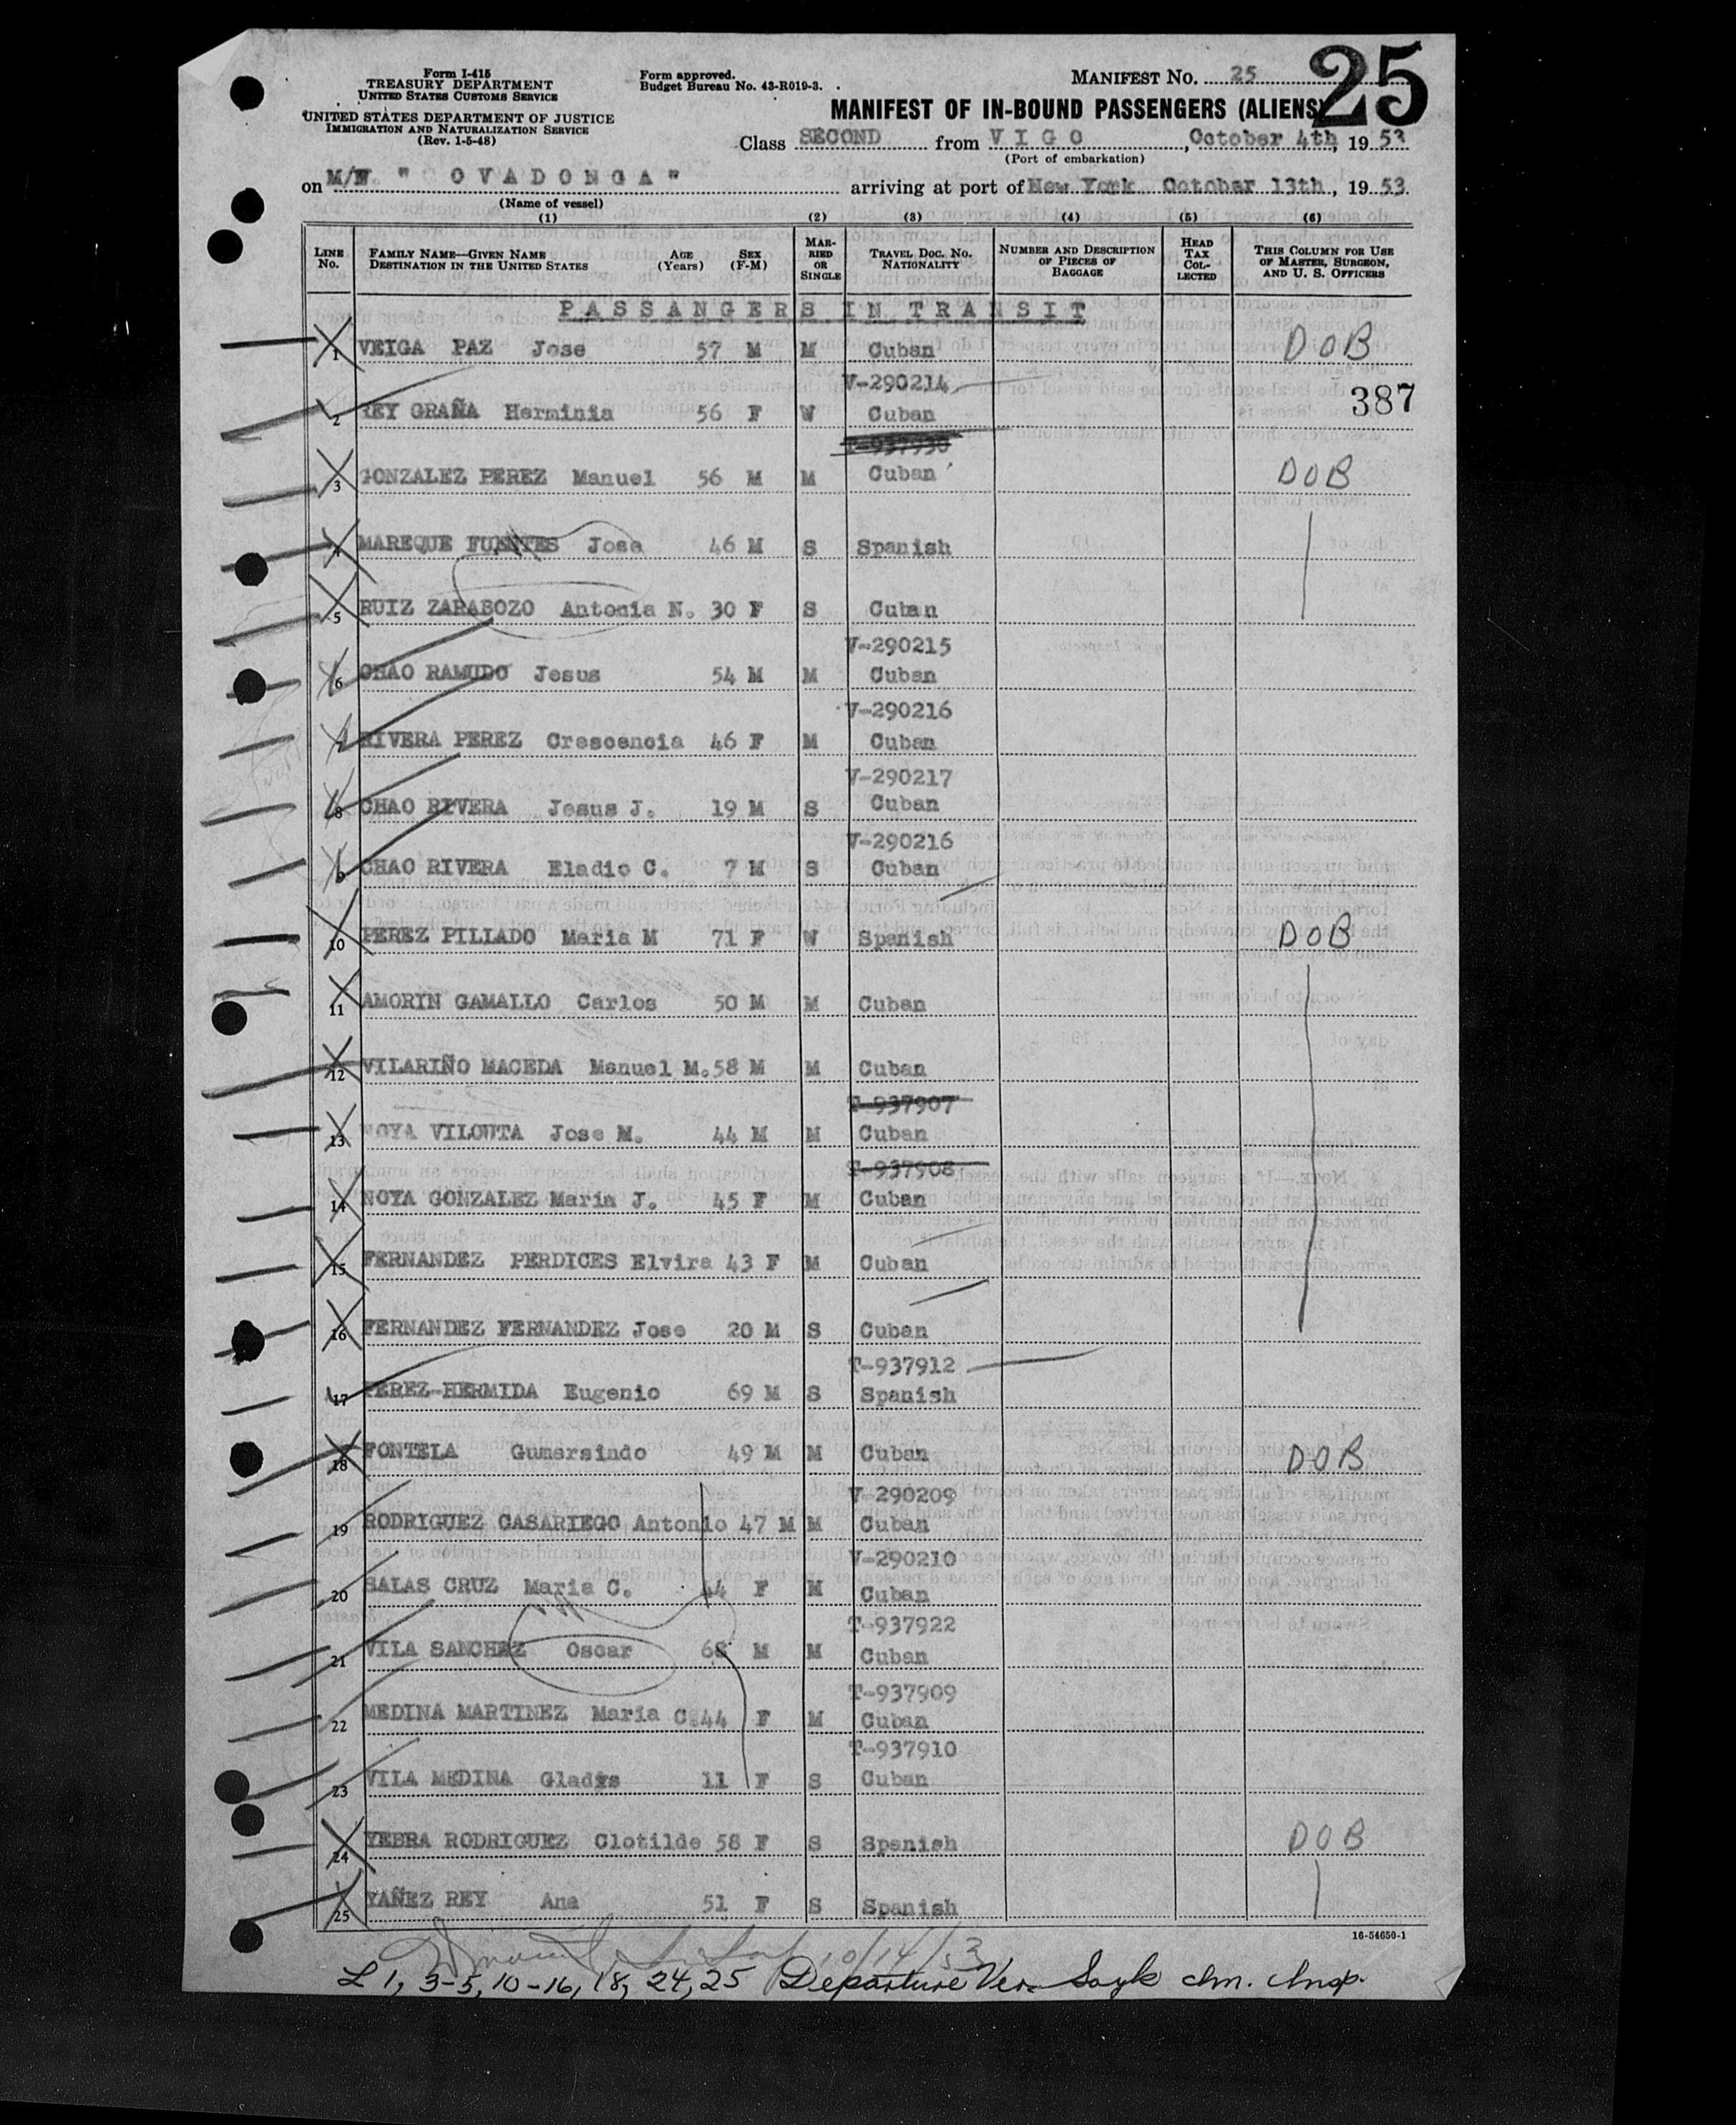 Form I-415
TREASURY DEPARTMENT
UNITED STATES CUSTOMS SERVICE
UNITED STATES DEPARTMENT OF JUSTICE
IMMIGRATION AND NATURALIZATION SERVICE
(Rev. 1-5-48)
Form approved.
Budget Bureau No. 43-R019-3.
MANIFEST NO. 25
25
MANIFEST OF IN-BOUND PASSENGERS (ALIENS)
Class SECOND from VIGO, October 4th, 1953
(Port of embarkation)
on M/N. "COVADONGA" arriving at port of New York October 13th, 1953.
(Name of vessel)
(1) (2) (3) (4) (5) (6)
LINE No. FAMILY NAME—GIVEN NAME DESTINATION IN THE UNITED STATES AGE (Years) SEX (F-M) MARRIED OR SINGLE TRAVEL DOC. NO. NATIONALITY NUMBER AND DESCRIPTION OF PIECES OF BAGGAGE HEAD TAX COLLECTED THIS COLUMN FOR USE OF MASTER, SURGEON, AND U. S. OFFICERS
PASSANGERS IN TRANSIT
1 VEIGA PAZ Jose 57 M M Cuban DOB
V-290214
387
2 REY GRAÑA Herminia 56 F W Cuban
T-937930
3 GONZALEZ PEREZ Manuel 56 M M Cuban DOB
4 MAREQUE FUENTES Jose 46 M S Spanish
5 RUIZ ZARABOZO Antonia N. 30 F S Cuban
V-290215
6 CHAO RAMUDO Jesus 54 M M Cuban
V-290216
7 RIVERA PEREZ Crescencia 46 F M Cuban
V-290217
8 CHAO RIVERA Jesus J. 19 M S Cuban
V-290216
9 CHAO RIVERA Eladio C. 7 M S Cuban
10 PEREZ PILLADO Maria M 71 F W Spanish DOB
11 AMORIN GAMALLO Carlos 50 M M Cuban
12 VILARIÑO MACEDA Manuel M. 58 M M Cuban
T-937907
13 NOYA VILOUTA Jose M. 44 M M Cuban
T-937908
14 NOYA GONZALEZ Maria J. 45 F M Cuban
15 FERNANDEZ PERDICES Elvira 43 F M Cuban
16 FERNANDEZ FERNANDEZ Jose 20 M S Cuban
T-937912
17 PEREZ-HERMIDA Eugenio 69 M S Spanish
18 FONTELA Gumersindo 49 M M Cuban DOB
V-290209
19 RODRIGUEZ CASARIEGO Antonio 47 M M Cuban
V-290210
20 SALAS CRUZ Maria C. 44 F M Cuban
T-937922
21 VILA SANCHEZ Oscar 68 M M Cuban
T-937909
22 MEDINA MARTINEZ Maria C 44 F M Cuban
T-937910
23 VILA MEDINA Gladys 11 F S Cuban
24 YEBRA RODRIGUEZ Clotilde 58 F S Spanish DOB
25 YAÑEZ REY Ana 51 F S Spanish
16-54650-1
10/14/53
L 1, 3-5, 10-16, 18, 24, 25 Departure Ver. Sayk Im. Insp.